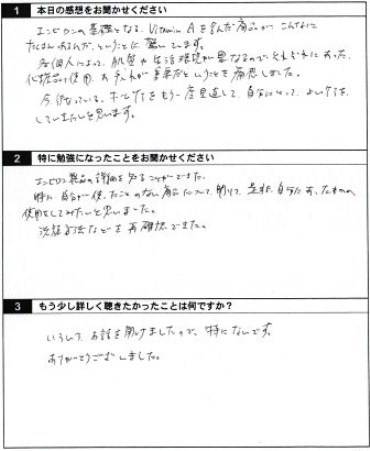 1 本日の感想をお聞かせください
エンビロンの基礎となる、Vitamin Aを含んだ商品が、こんなに
たくさんあるんだ、ということに驚いています。
各個人によって、肌質や生活環境が異なるので、それぞれにあった、
化粧品の使用、お手入れが重要だということを痛感しました。
今、行なっている、ホームケアをもう一度見直して、自分にとって、よいケアを
していきたいと思います。
2 特に勉強になったことをお聞かせください
エンビロン製品の詳細を知ることができた。
特に自分が使ったことのない商品について、知りて、是非、自分にあったものの
使用をしてみたいと思いました。
洗顔方法などを再確認できた。
3 もう少し詳しく聴きたかったことは何ですか?
いろいろ、お話を聞けましたので、特にないです。
ありがとうございました。